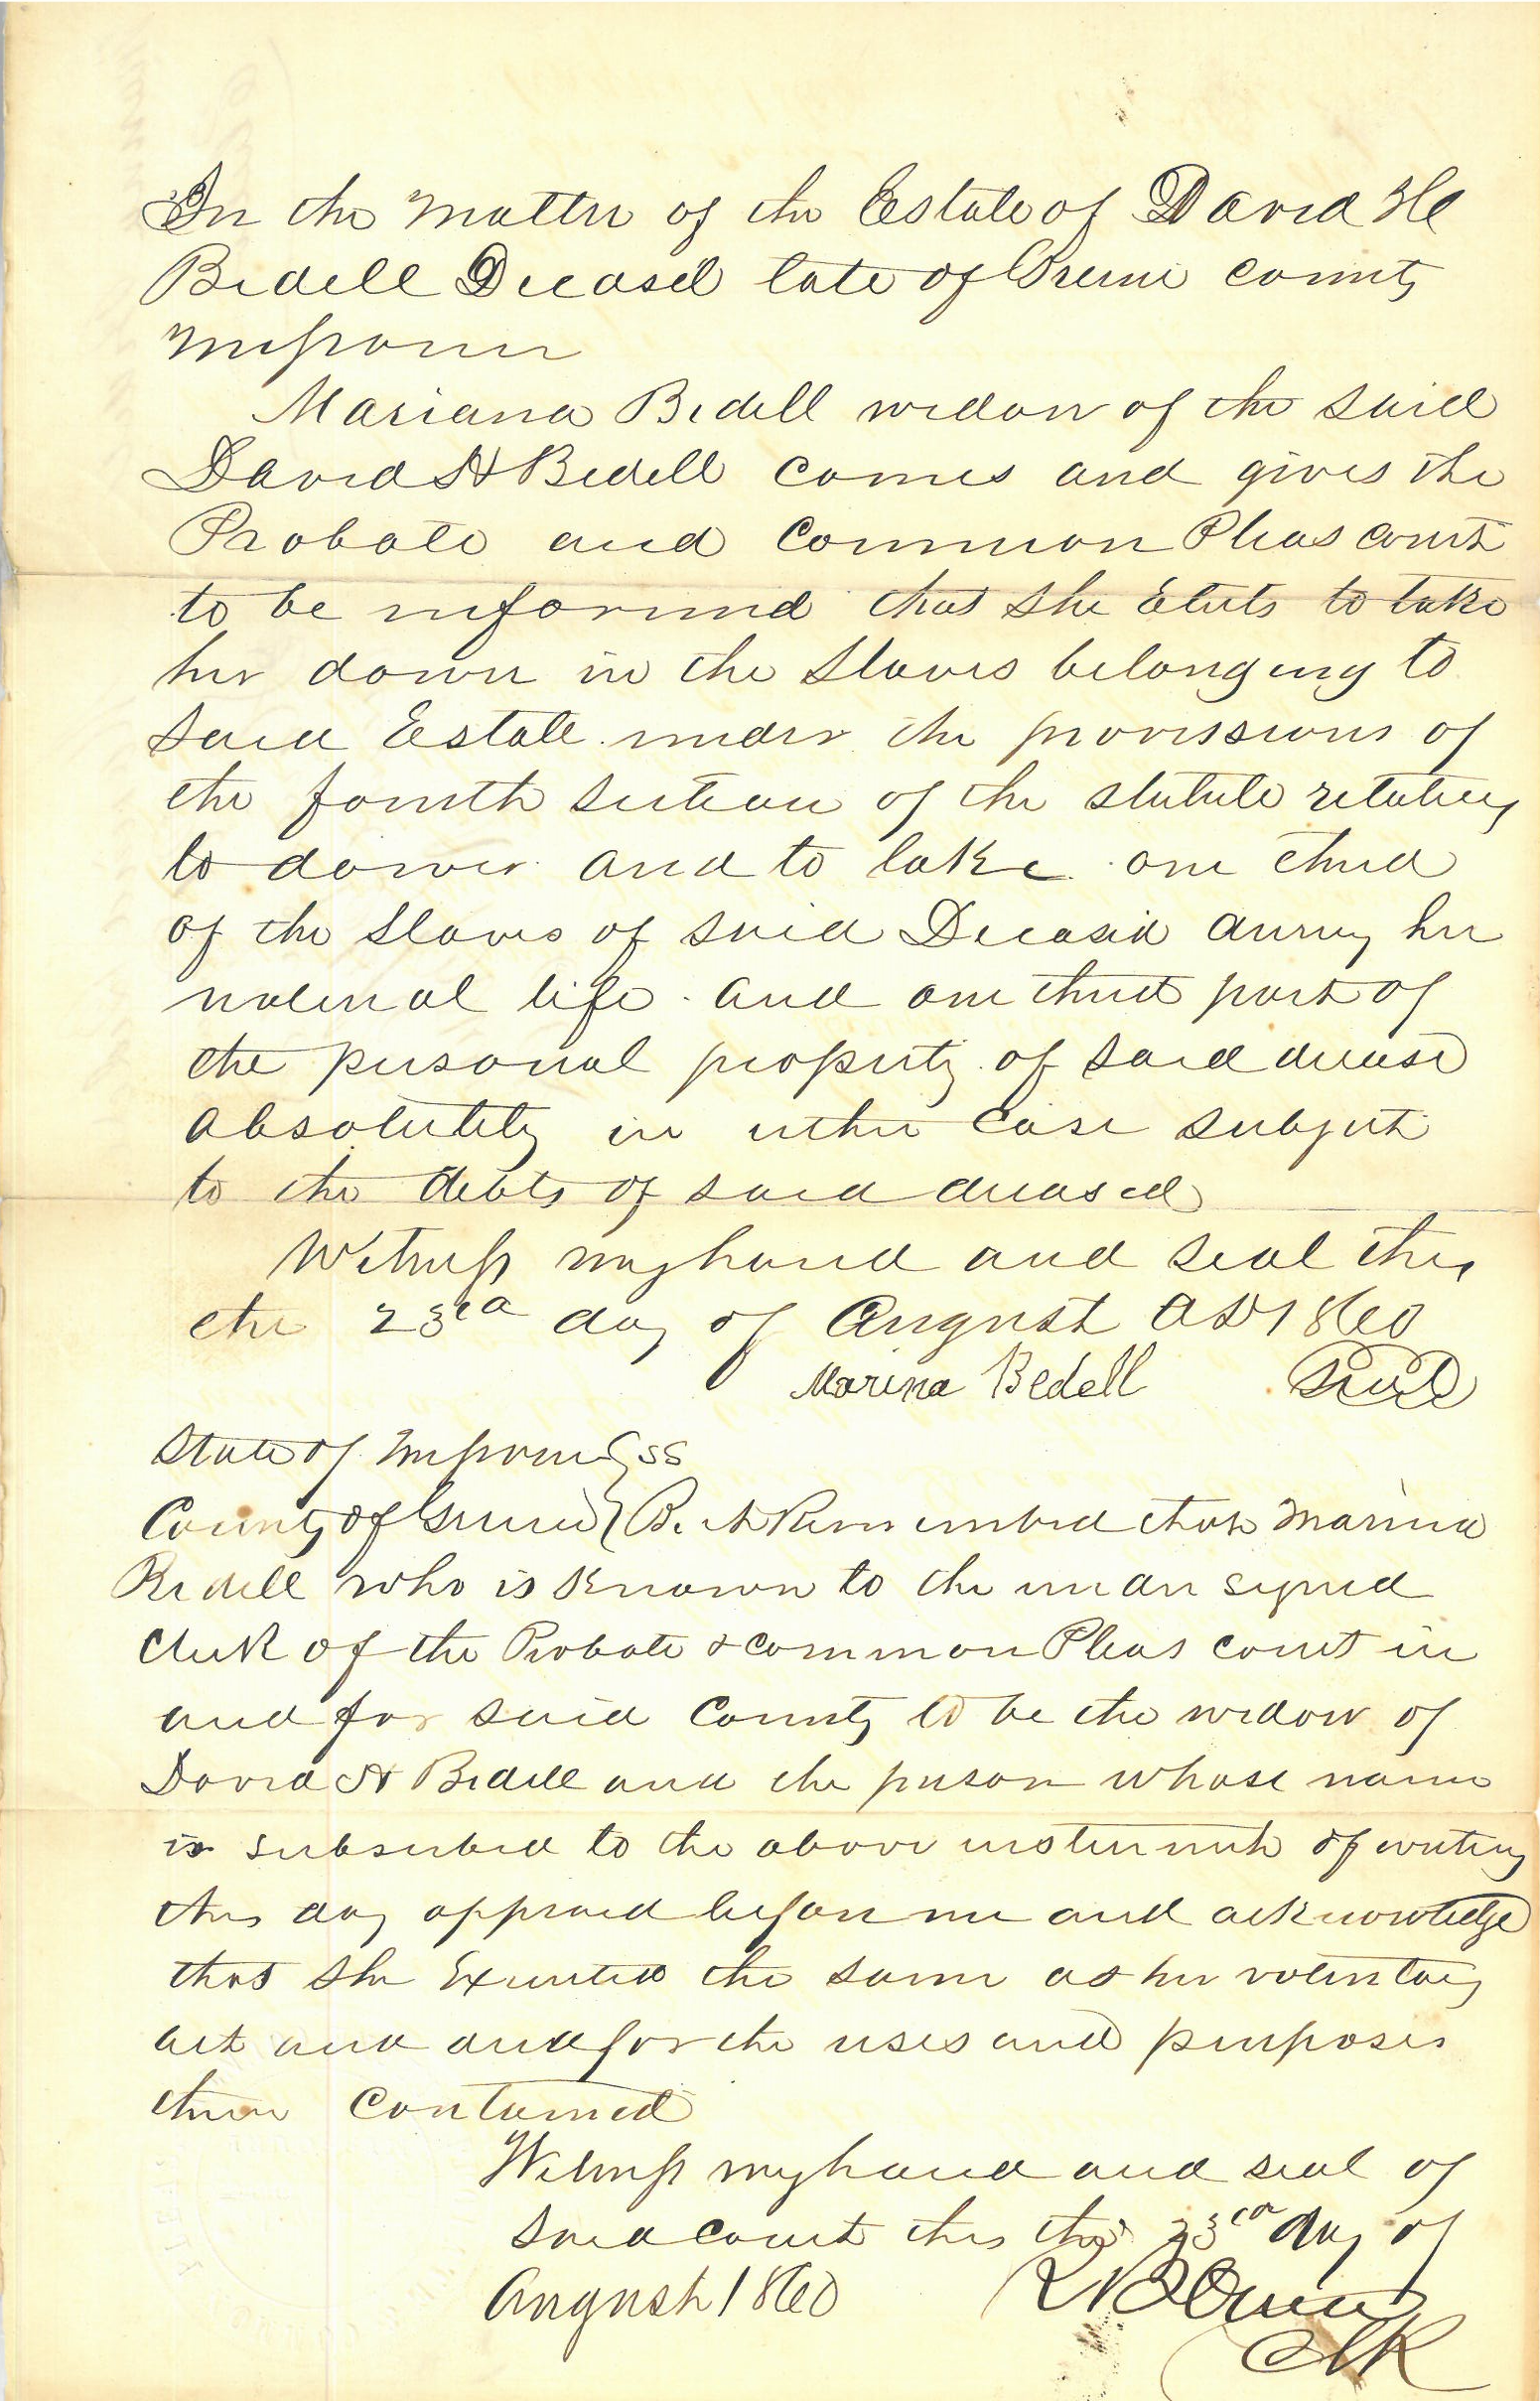 In the matter of the Estate of David H
Bedell Deceased late of Greene county
Missouri
Mariana Bedell widow of the said
David H Bedell comes and gives the
Probate and Common Pleas court
to be informed that she Elects to take
her dower in the slaves belonging to
said Estate under the provissions of
the fourth section of the statute relating
to dower and to take one third
of the slaves of said Deceased during her
natural life and one third part of
the personal property of said deceased
absolutely in either case subject
to the debts of said deceased
Witness my hand and seal this
the 23rd day of August AD 1860
Marina Bedell Seal
State of Missouri } ss
County of Greene } Be it Remembered that Marina
Bedell who is known to the undersigned
Clerk of the Probate & common Pleas court in
and for said County to be the widow of
David H Bedell and the person whose name
is subscribed to the above instrument of writing
this day appeared before me and acknowledge
that she Executed the same as her voluntary
act and deed for the uses and purposes
therein contained
Witness my hand and seal of
said court this the 23rd day of
August 1860
Clk